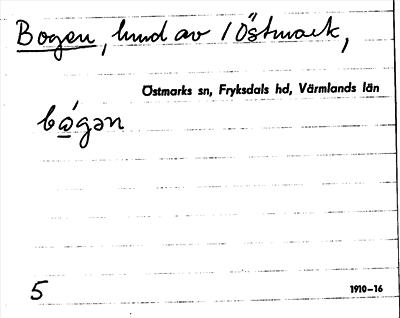 Bogen, hmd av 1 Östmark,
Östmarks sn, Fryksdals hd, Värmlands län
bågən
5
1910–16